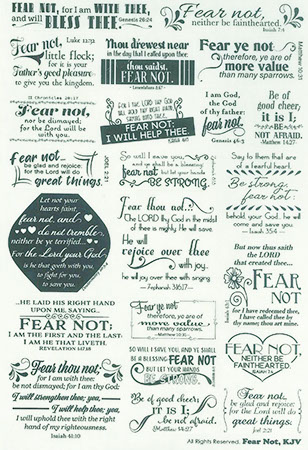 FEAR NOT, for I am WITH THEE,
and will BLESS THEE Genesis 26:24
Fear not,
neither be fainthearted.
Isaiah 7:4
Fear not, Luke 12:32
little flock;
for it is your
Father's good pleasure
to give you the kingdom.
Thou drewest near
in the day that I called upon thee:
thou saidst,
FEAR NOT.
Lamentations 3:57
Fear ye not
therefore, ye are of
more value
than many sparrows.
Matthew 10:31
Fear not,
nor be dismayed,
for the Lord will be
with you.
FOR I THE LORD THY GOD
WILL HOLD THY RIGHT HAND,
SAYING UNTO THEE,
FEAR NOT;
I WILL HELP THEE.
I am God,
the God
of thy father:
fear not
Genesis 46:3
Be of
good cheer;
it is I;
be
NOT AFRAID.
Matthew 14:27
Fear not
be glad and rejoice:
for the Lord will do
great things
JOEL 2:21
So will I save you,
and ye shall be a blessing:
fear not,
but let your hands
BE STRONG.
Say to them that are
of a fearful heart,
Be strong,
fear not:
behold, your God...he will
come and save you.
Isaiah 35:4
Let not your
hearts faint,
fear not, and
do not tremble,
neither be ye terrified...
For the Lord your God
is he that goeth with you,
to fight for you,
to save you.
Fear thou not:
The LORD thy God in the midst
of thee is mighty; He will save.
He will
rejoice over thee
with joy.
he will joy over thee with singing
Zephaniah 3:16-17
But now thus saith
the LORD
that created thee...
FEAR
NOT
for I have redeemed thee,
I have called thee
by thy name; thou art mine.
...HE LAID HIS RIGHT HAND
UPON ME, SAYING...
FEAR NOT;
I AM THE FIRST AND THE LAST:
I AM HE THAT LIVETH.
REVELATION 1:17,18
Fear ye not
therefore, ye are of
more value
than many sparrows.
FEAR NOT,
NEITHER BE
FAINTHEARTED.
ISAIAH 7:4
Fear thou not;
for I am with thee:
be not dismayed; for I am thy God:
I will strengthen thee; yea,
I will help thee; yea,
I will uphold thee with the right
hand of my righteousness.
Isaiah 41:10
SO WILL I SAVE YOU, AND YE SHALL
BE A BLESSING: FEAR NOT
BUT LET YOUR HANDS
BE STRONG
Be of good cheer;
IT IS I;
be not afraid.
Matthew 14:27
Fear not,
be glad and rejoice:
for the Lord will do
great things.
Joel 2:21
All Rights Reserved. Fear Not, KJV